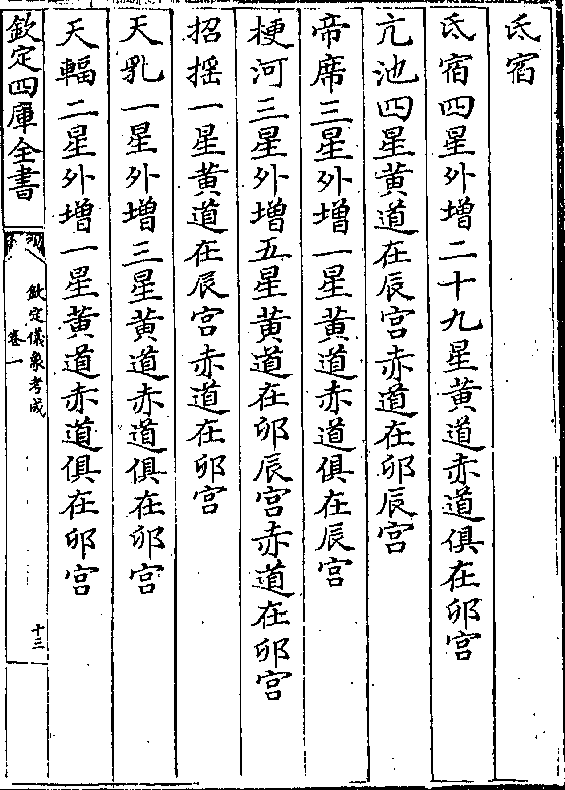 氐宿
氐宿四星外增二十九星黃道赤道俱在卯宮
亢池四星黃道在辰宮赤道在卯辰宮
帝席三星外增一星黃道赤道俱在辰宮
梗河三星外增五星黃道在卯辰宮赤道在卯宮
招搖一星黃道在辰宮赤道在卯宮
天乳一星外增三星黃道赤道俱在卯宮
天輻二星外增一星黃道赤道俱在卯宮
欽定四庫全書
欽定儀象考成
卷一
十三